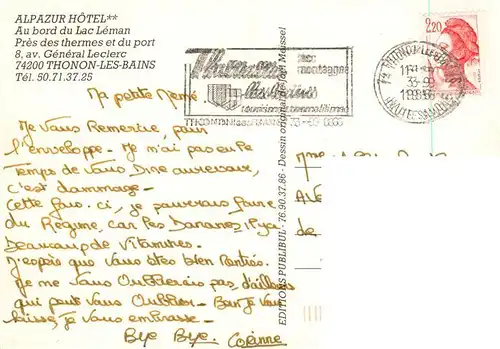 ALPAZUR HÔTEL**
Au bord du Lac Léman
Près des thermes et du port
8, av. Général Leclerc
74200 THONON-LES-BAINS
Tél. 50.71.37.25
2,20
Thonon
les bains
Ma petite Memé.
Je vous Remercie, pour
l'enveloppe - Je n'ai pas eu le
Temps de vous Dire aurevoir,
c'est dommage -
Cette fois. ci, je pourrais faire
du Régime, car les Bananes il y a
Beaucoup de Vitamines.
J'espère que vous êtes bien Rentrés.
Je ne vous Oublierais pas d'ailleurs
qui peut vous Oublier - Bon Je vous
laisse, je vous embrasse -
Bye Bye. Corinne
EDITIONS PUBLIBUL - 76.90.37.86 - Dessin original de
Mme
AVE
de